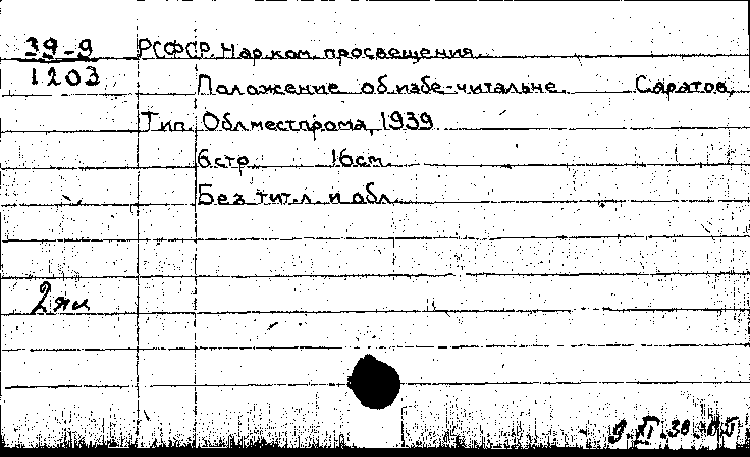 39-9
1203
РСФСР. Нар. ком. просвещения.
Положение об избе-читальне. Саратов,
Тип. Облместпрома, 1939
6 стр. 16 см.
Без тит. л. и обл.
2 экз
9.XI.39